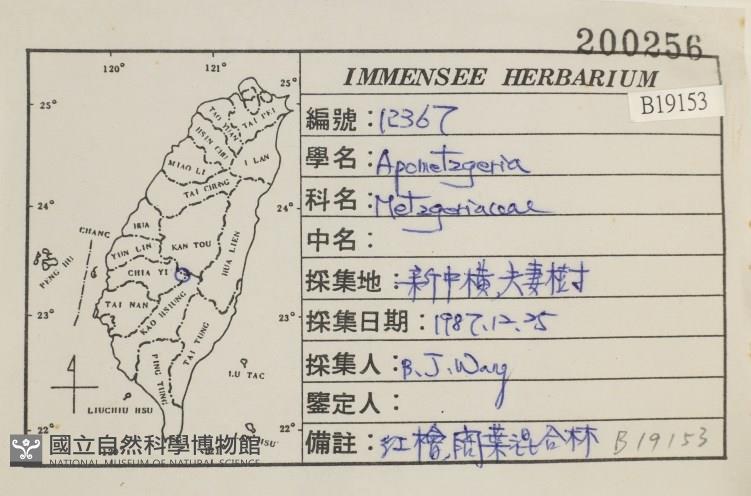 200256
IMMENSEE HERBARIUM
B19153
編號：12367
學名：Apometzgeria
科名：Metzgeriaceae
中名：
採集地：新中橫,夫妻樹
採集日期：1987.12.25
採集人：B.J.Wang
鑒定人：
備註：紅檜,闊葉混合林 B19153
120° 121°
25° 25°
TAI PEI
TAO YUAN
HSIN CHU
I LAN
MIAO LI
TAI CHUNG
24° 24°
CHANG HUA
YUN LIN
NAN TOU
HUA LIEN
PENG HU
CHIA YI
TAI NAN
KAO HSIUNG
23° 23°
TAI TUNG
PING TUNG
LU TAO
LIUCHIU HSU
22° 22°
國立自然科學博物館
NATIONAL MUSEUM OF NATURAL SCIENCE